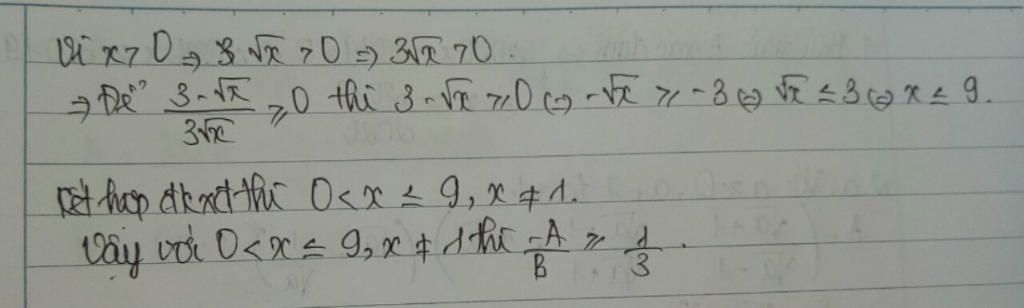 Vì x > 0 ⇒ √x > 0 ⇒ 3√x > 0.
⇒ Để (3 - √x)/(3√x) ≥ 0 thì 3 - √x ≥ 0 ⇔ -√x ≥ -3 ⇔ √x ≤ 3 ⇔ x ≤ 9.
Kết hợp đkxđ thì 0 < x ≤ 9, x ≠ 1.
Vậy với 0 < x ≤ 9, x ≠ 1 thì -A/B ≥ 1/3.